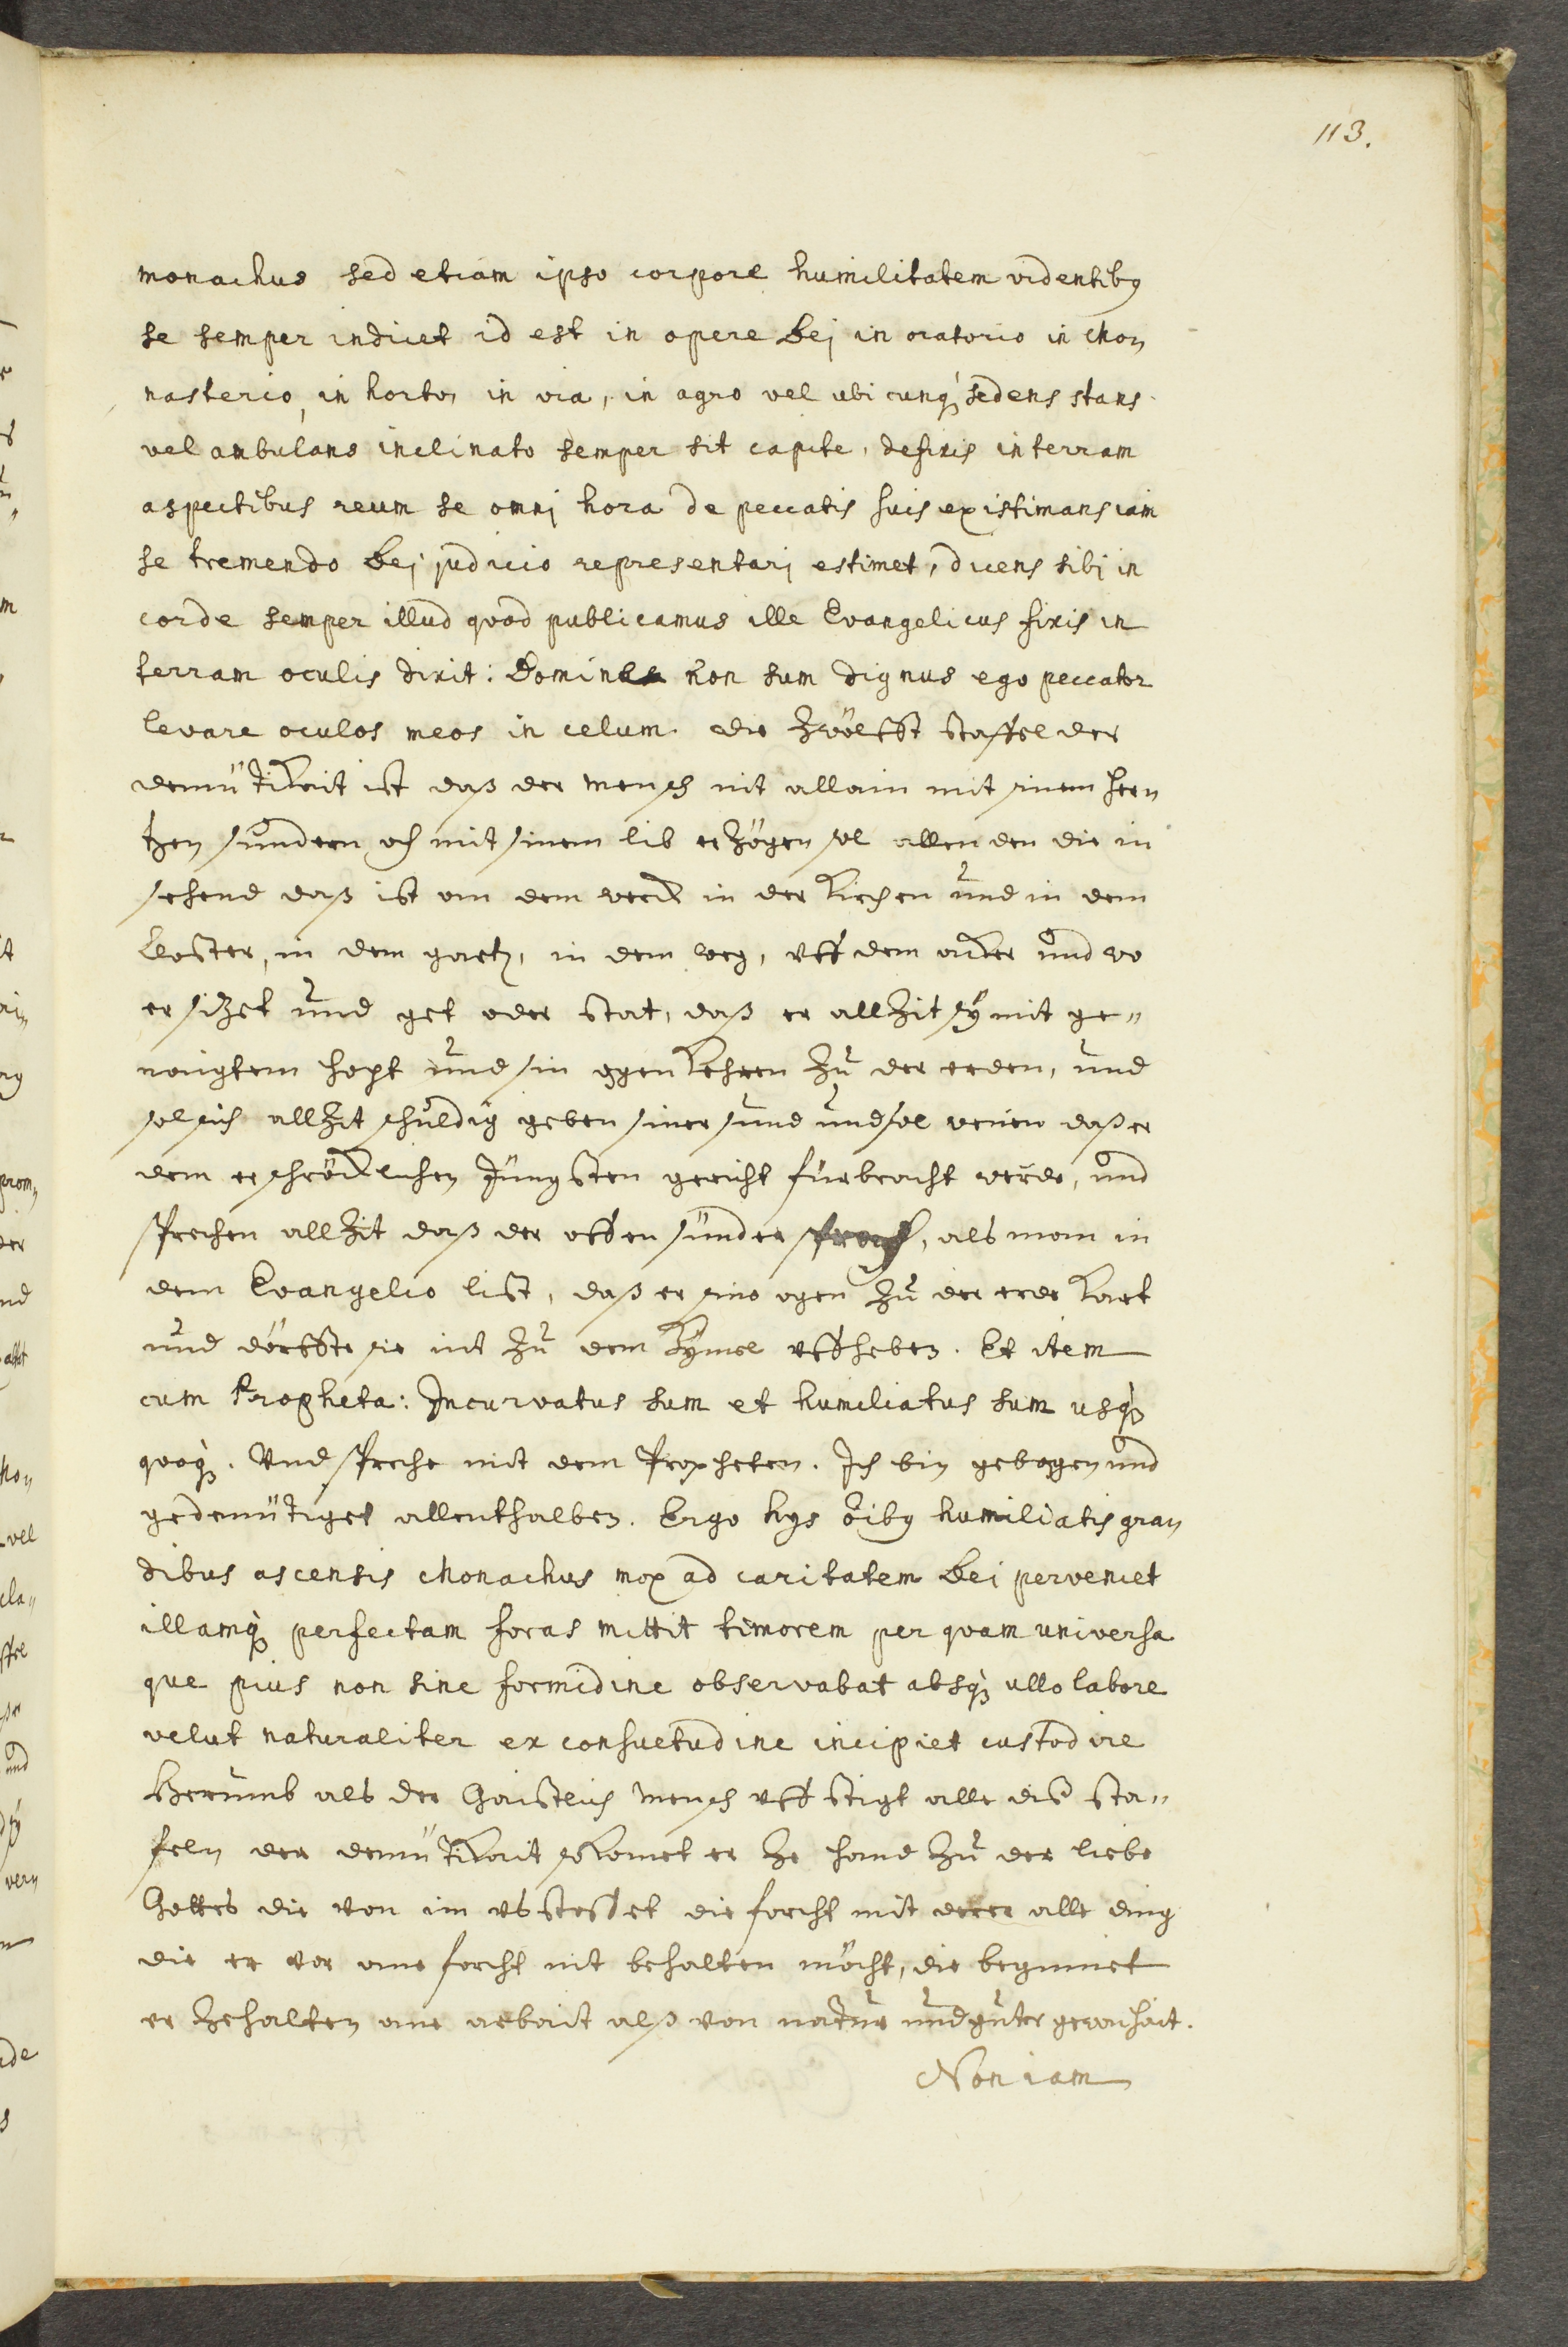 113.
monachus sed etiam ipso corpore humilitatem videntibꝰ
se semper indicet id est in opere Dej in oratorio in Mon
nasterio, in horto, in via, in agro vel ubi cunqꝫ sedens stans
vel ambulans inclinato semper sit capite, defixis in terram
aspectibus reum se omnj hora de peccatis suis existimans iam
se tremendo Dej judicio representarj estimet, dicens sibj in
corde semper illud quod publicamus ille Evangelicus fixis in
terram oculis dixit: Domine non sum dignus ego peccator
levare oculos meos in celum. die zwölfft staffel der
demütikait ist daß der mensch nit allain mit sinem her„
tzen sundern och mit sinem lib erzögen sol allen den die in
sehend daß ist am dem werck in der kirchen und in dem
kloster, in dem gartẽ, in dem weg, uff dem acker und wo
er sizet und get oder stat, daß er allzit sÿ mit ge„
naigtem hopt und sin ogen kehren zu der erden, und
sol sich allzit schuldig geben siner sund und sol wenen daß er
dem erschröcklichen Jüngsten gericht fürbracht werde, und
sprechen allzit daß der offen sünder sprach, als man in
dem Evangelio list, daß er sine ogen zu der erde kart
und dörffte sie nit zu dem hÿmel uffheben. Et item
cum Propheta: Incurvatus sum et humiliatus sum usqꝫ
quaqꝫ. Und spreche mit dem Propheten. Ich bin gebogen und
gedemütiget allenthalben. Ergo hys oĩbꝰ humiliatis gran
dibus ascensis Monachus mox ad caritatem Dei perveniet
illamqꝫ perfectam foras mittit timorem per quam universa
que prius non sine formidine observabat absqꝫ ullo labore
velut naturaliter ex consuetudine incipiet custodire
Herumb als der Gaistlich mensch uff stigt alle dise sta„
feln der demütikait so komet er ze hand zu der liebe
Gottes die von im usstosset die forcht mit derer alle ding
die er vor one forcht nit behalten möcht, die beginnet
er zehalten one arbait alß von natur und guter gewonhait.
Non iam